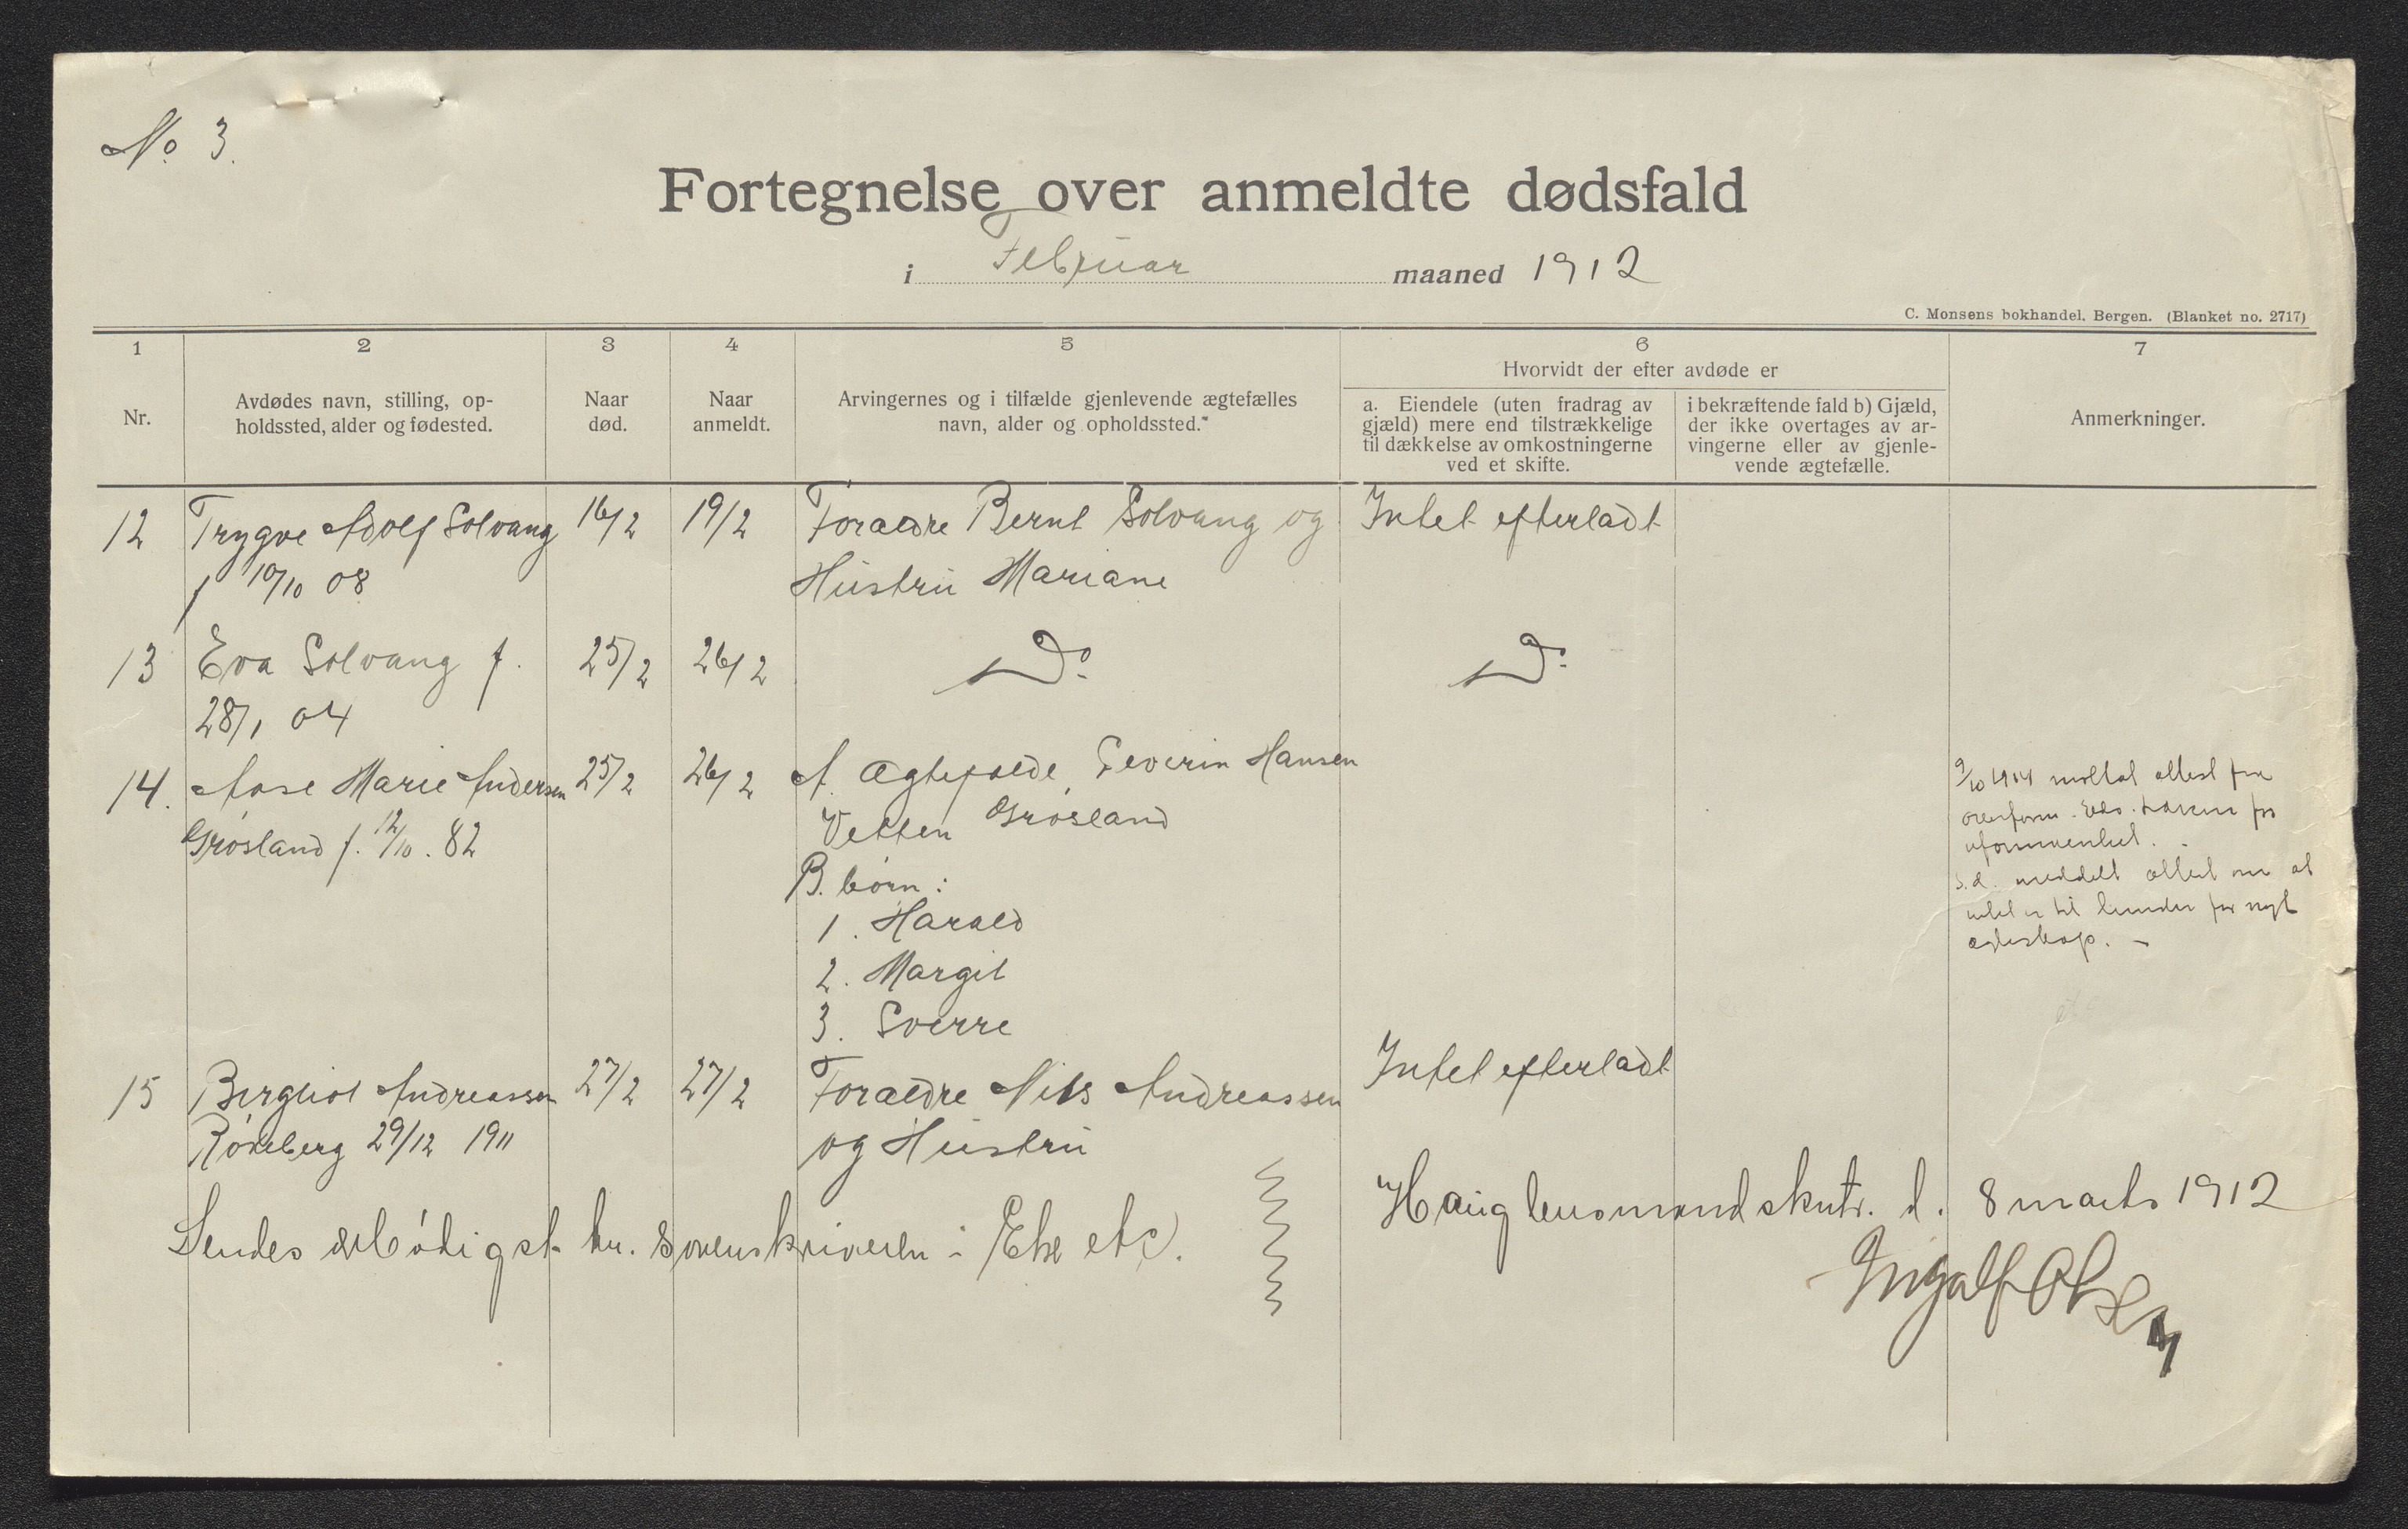 No 3.
Fortegnelse over anmeldte dødsfald
i Februar maaned 1912
C. Monsens bokhandel, Bergen. (Blanket no. 2717)
1 2 3 4 5 6 7
Nr.
Avdødes navn, stilling, op-
holdssted, alder og fødested.
Naar
død.
Naar
anmeldt.
Arvingernes og i tilfælde gjenlevende ægtefælles
navn, alder og opholdssted.
Hvorvidt der efter avdøde er
a. Eiendele (uten fradrag av
gjæld) mere end tilstrækkelige
til dækkelse av omkostningerne
ved et skifte.
i bekræftende fald b) Gjæld,
der ikke overtages av ar-
vingerne eller av gjenle-
vende ægtefælle.
Anmerkninger.
12 Trygve Adolf Solvang 16/2 19/2 Forældre Bernt Solvang og Intet efterladt
f 10/10 08 Hustru Mariane
13 Eva Solvang f. 25/2 26/2 Do. Do.
28/1 04
14. Aase Marie Andersen 25/2 26/2 A. Ægtefælde Severin Hansen
Grøsland f. 12/10. 82 Vetten Grøsland
B. børn:
1. Harald
2. Margit
3. Sverre
9/10 1914 mottat attest fra
overform.
s.d. meddelt attest om at
intet er til hinder for nyt
egteskap. -
15 Bergliot Andreassen 27/2 27/2 Forældre Nils Andreassen Intet efterladt
29/12 1911 og Hustru
Haug lensmandskntr. d. 8 marts 1912
Sendes ærbødigst hr. sorenskriveren i Eker etc.
Ingolf Olsen